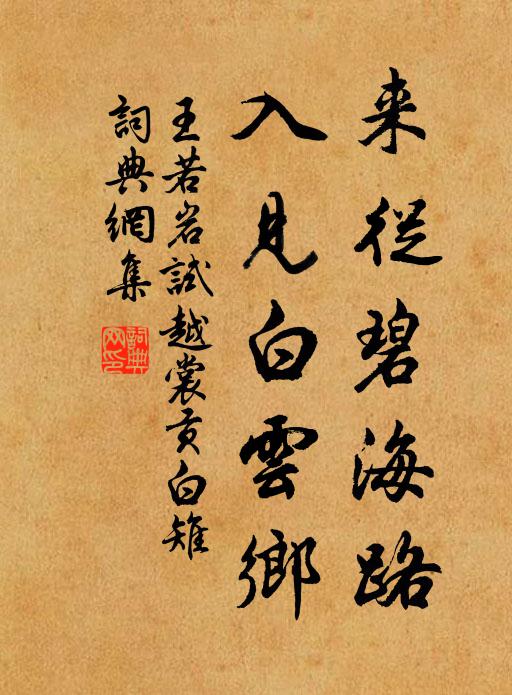 来從碧海路
入見白雲鄉
王若岩試越裳貢白雉
詞典網集
詞典
网印